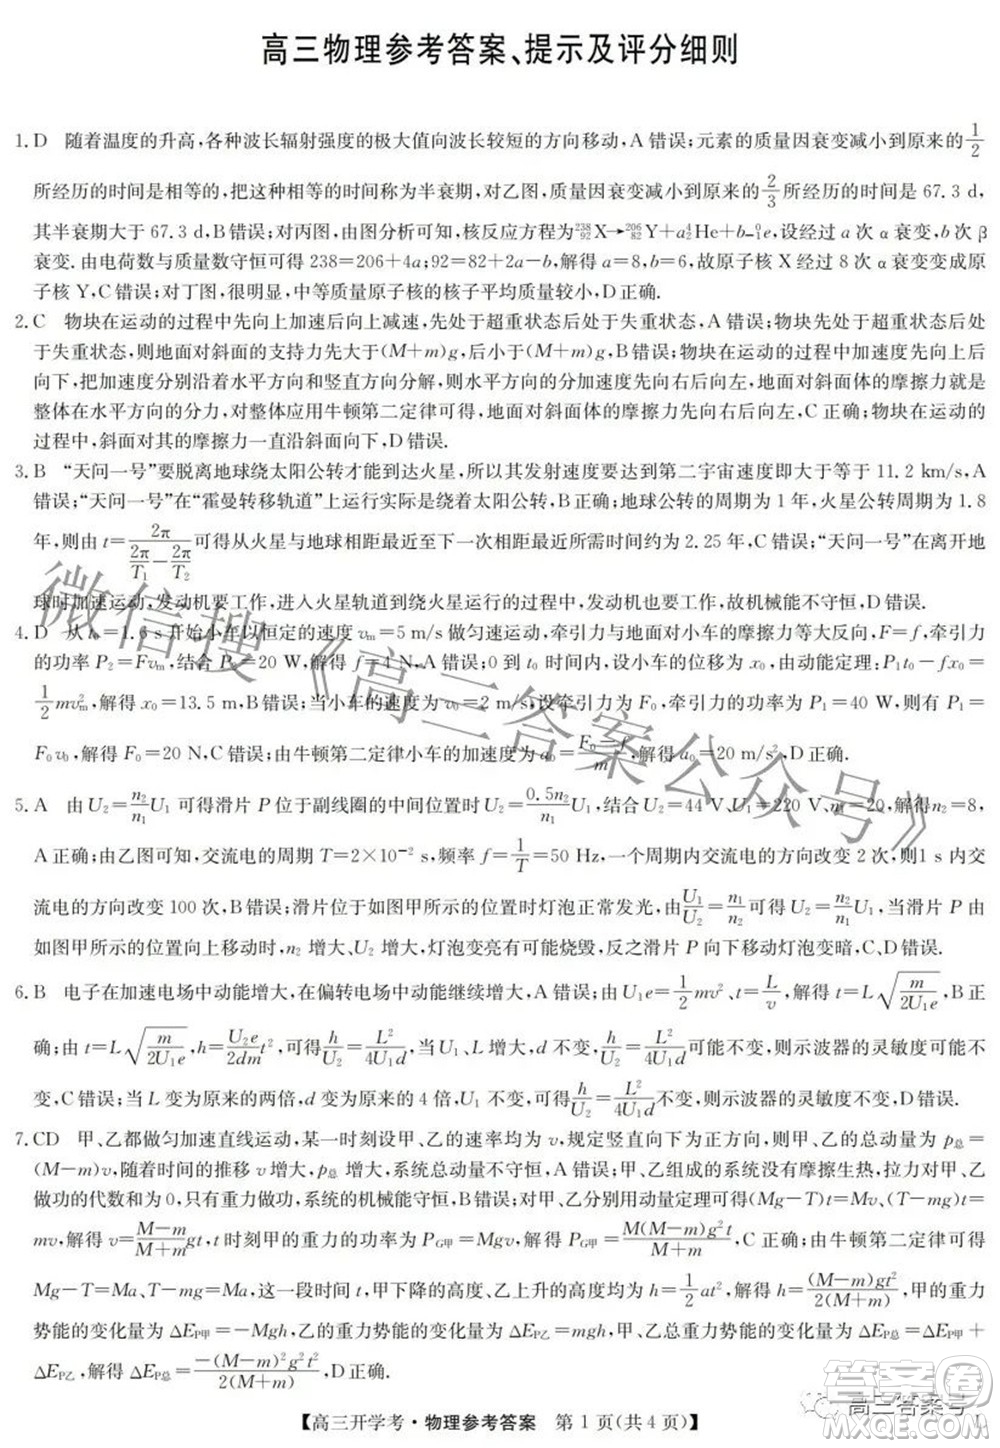 高三物理参考答案、提示及评分细则
1. D 随着温度的升高,各种波长辐射强度的极大值向波长较短的方向移动,A 错误;元素的质量因衰变减小到原来的 1/2
所经历的时间是相等的,这种相等的时间称为半衰期,对乙图,质量因衰变减小到原来的 2/3 所经历的时间是 67.3 d,
其半衰期大于 67.3 d,B 错误;对丙图,由图分析可知,核反应方程为 ²³⁸₉₂X→²⁰⁶₈₂Y+a⁴₂He+b⁰₋₁e,设经过 a 次 α 衰变,b 次 β
衰变. 由电荷数与质量数守恒可得 238=206+4a;92=82+2a-b,解得 a=8,b=6,故原子核 X 经过 8 次 α 衰变变成原
子核 Y,C 错误;对丁图,很明显,中等质量原子核的核子平均质量较小,D 正确.
2. C 物块在运动的过程中先向上加速后向上减速,先处于超重状态后处于失重状态,A 错误;物块先处于超重状态后处
于失重状态,则地面对斜面的支持力先大于(M+m)g,后小于(M+m)g,B 错误;物块在运动的过程中加速度先向上后向
下,把加速度分别沿着水平方向和竖直方向分解,则水平方向的分加速度先向右后向左,地面对斜面体的摩擦力就是
整体在水平方向的分力,对整体应用牛顿第二定律可得,地面对斜面体的摩擦力先向右后向左,C 正确;物块在运动的
过程中,斜面对其的摩擦力一直沿斜面向下,D 错误.
3. B “天问一号”要脱离地球绕太阳公转才能到达火星,所以其发射速度要达到第二宇宙速度即大于等于 11.2 km/s,A
错误;“天问一号”在“霍曼转移轨道”上运行实际是绕着太阳公转,B 正确;地球公转的周期为 1 年,火星公转周期为 1.8
年,则由 t=2π/(2π/T₁-2π/T₂) 可得从火星与地球相距最近至下一次相距最近所需时间约为 2.25 年,C 错误;“天问一号”在离开地
球时加速运动,发动机要工作,进入火星轨道到绕火星运行的过程中,发动机也要工作,故机械能不守恒,D 错误.
4. D 从 t₀=1.6 s 开始小车以恒定的速度 vₘ=5 m/s 做匀速运动,牵引力与地面对小车的摩擦力等大反向,F=f,牵引力
的功率 P₂=Fvₘ,结合 P₂=20 W,解得 f=4 N,A 错误;0 到 t₀ 时间内,设小车的位移为 x₀,由动能定理:P₁t₀-fx₀=
1/2 mvₘ²,解得 x₀=13.5 m,B 错误;当小车的速度为 v₀=2 m/s,设牵引力为 F₀,牵引力的功率为 P₁=40 W,则有 P₁=
F₀v₀,解得 F₀=20 N,C 错误;由牛顿第二定律小车的加速度为 a₀=(F₀-f)/m,解得 a₀=20 m/s²,D 正确.
5. A 由 U₂=n₂/n₁ U₁ 可得滑片 P 位于副线圈的中间位置时 U₂=0.5n₂/n₁ U₁,结合 U₂=44 V、U₁=220 V、n₁=20,解得 n₂=8,
A 正确;由乙图可知,交流电的周期 T=2×10⁻² s,频率 f=1/T=50 Hz,一个周期内交流电的方向改变 2 次,则 1 s 内交
流电的方向改变 100 次,B 错误;滑片 P 位于如图甲所示的位置时灯泡正常发光,由 U₁/U₂=n₁/n₂ 可得 U₂=n₂/n₁ U₁,当滑片 P 由
如图甲所示的位置向上移动时,n₂ 增大、U₂ 增大,灯泡变亮有可能烧毁,反之滑片 P 向下移动灯泡变暗,C、D 错误.
6. B 电子在加速电场中动能增大,在偏转电场中动能继续增大,A 错误;由 U₁e=1/2 mv²、t=L/v,解得 t=L√(m/2U₁e),B 正
确;由 t=L√(m/2U₁e),h=U₂e/2dm t²,可得 h/U₂=L²/4U₁d,当 U₁、L 增大,d 不变,h/U₂=L²/4U₁d 可能不变,则示波器的灵敏度可能不
变,C 错误;当 L 变为原来的两倍,d 变为原来的 4 倍,U₁ 不变,可得 h/U₂=L²/4U₁d 不变,则示波器的灵敏度不变,D 错误.
7. CD 甲、乙都做匀加速直线运动,某一时刻设甲、乙的速率均为 v,规定竖直向下为正方向,则甲、乙的总动量为 p总=
(M-m)v,随着时间的推移 v 增大,p总 增大,系统总动量不守恒,A 错误;甲、乙组成的系统没有摩擦生热,拉力对甲、乙
做功的代数和为 0,只有重力做功,系统的机械能守恒,B 错误;对甲、乙分别用动量定理可得(Mg-T)t=Mv、(T-mg)t=
mv,解得 v=(M-m)/(M+m) gt,t 时刻甲的重力的功率为 PG甲=Mgv,解得 PG甲=M(M-m)g²t/(M+m),C 正确;由牛顿第二定律可得
Mg-T=Ma、T-mg=Ma,这一段时间 t,甲下降的高度、乙上升的高度均为 h=1/2 at²,解得 h=(M-m)gt²/2(M+m),甲的重力
势能的变化量为 ΔEP甲=-Mgh,乙的重力势能的变化量为 ΔEP乙=mgh,甲、乙总重力势能的变化量为 ΔEP总=ΔEP甲+
ΔEP乙,ΔEP总=-(M-m)²g²t²/2(M+m),D 正确.
【高三开学考·物理参考答案 第 1 页(共 4 页)】
微信搜《高三答案公众号》
高三答案号